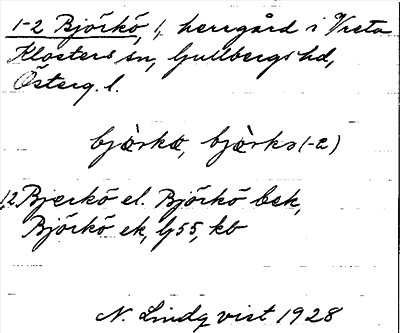 1-2 Björkö, 1, herrgård i Vreta
Klosters sn, Gullbergs hd,
Österg. l.
bjærkə, bjærkə (-2)
1,2 Bjerkö el. Björkö bek,
Björkö ek, G55, kb
N. Lindqvist 1928